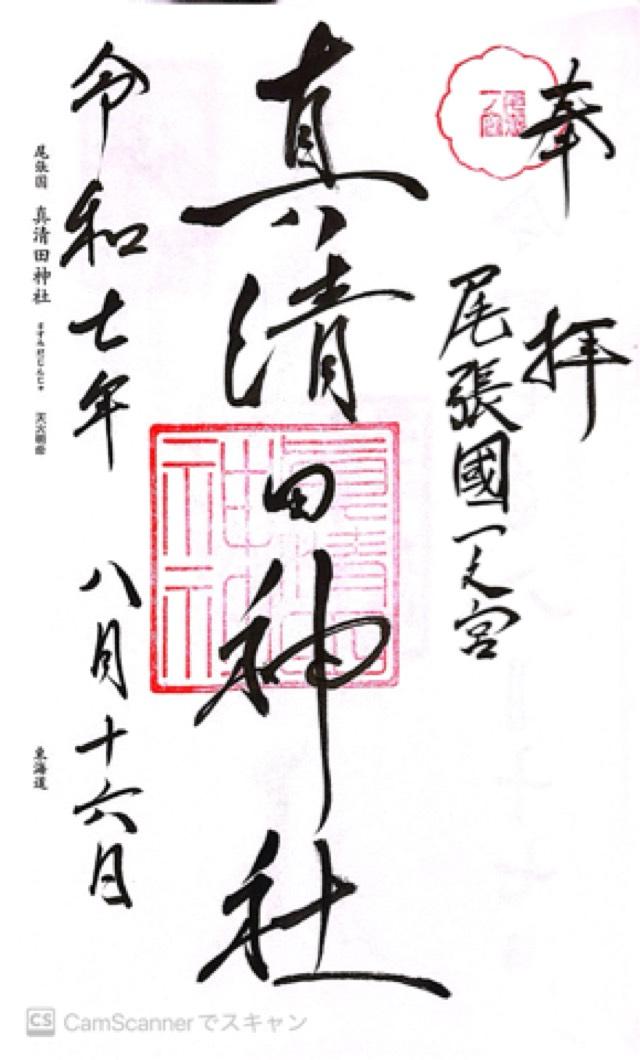 奉拝
尾張國一之宮
真清田神社
令和七年 八月十六日
尾張国 真清田神社 ますみだじんじゃ 天火明命
東海道
尾張
一宮
真清田
神社
CS CamScannerでスキャン